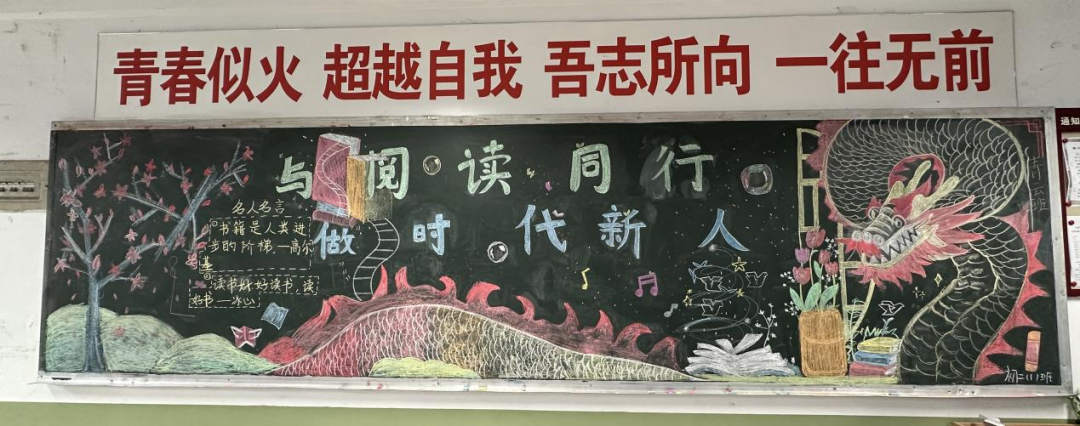 青春似火 超越自我 吾志所向 一往无前
通知
与阅读同行
做时代新人
名人名言
书籍是人类进
步的阶梯.—高尔
基
读书好好读书,读
好书—冰心
初二(1)班